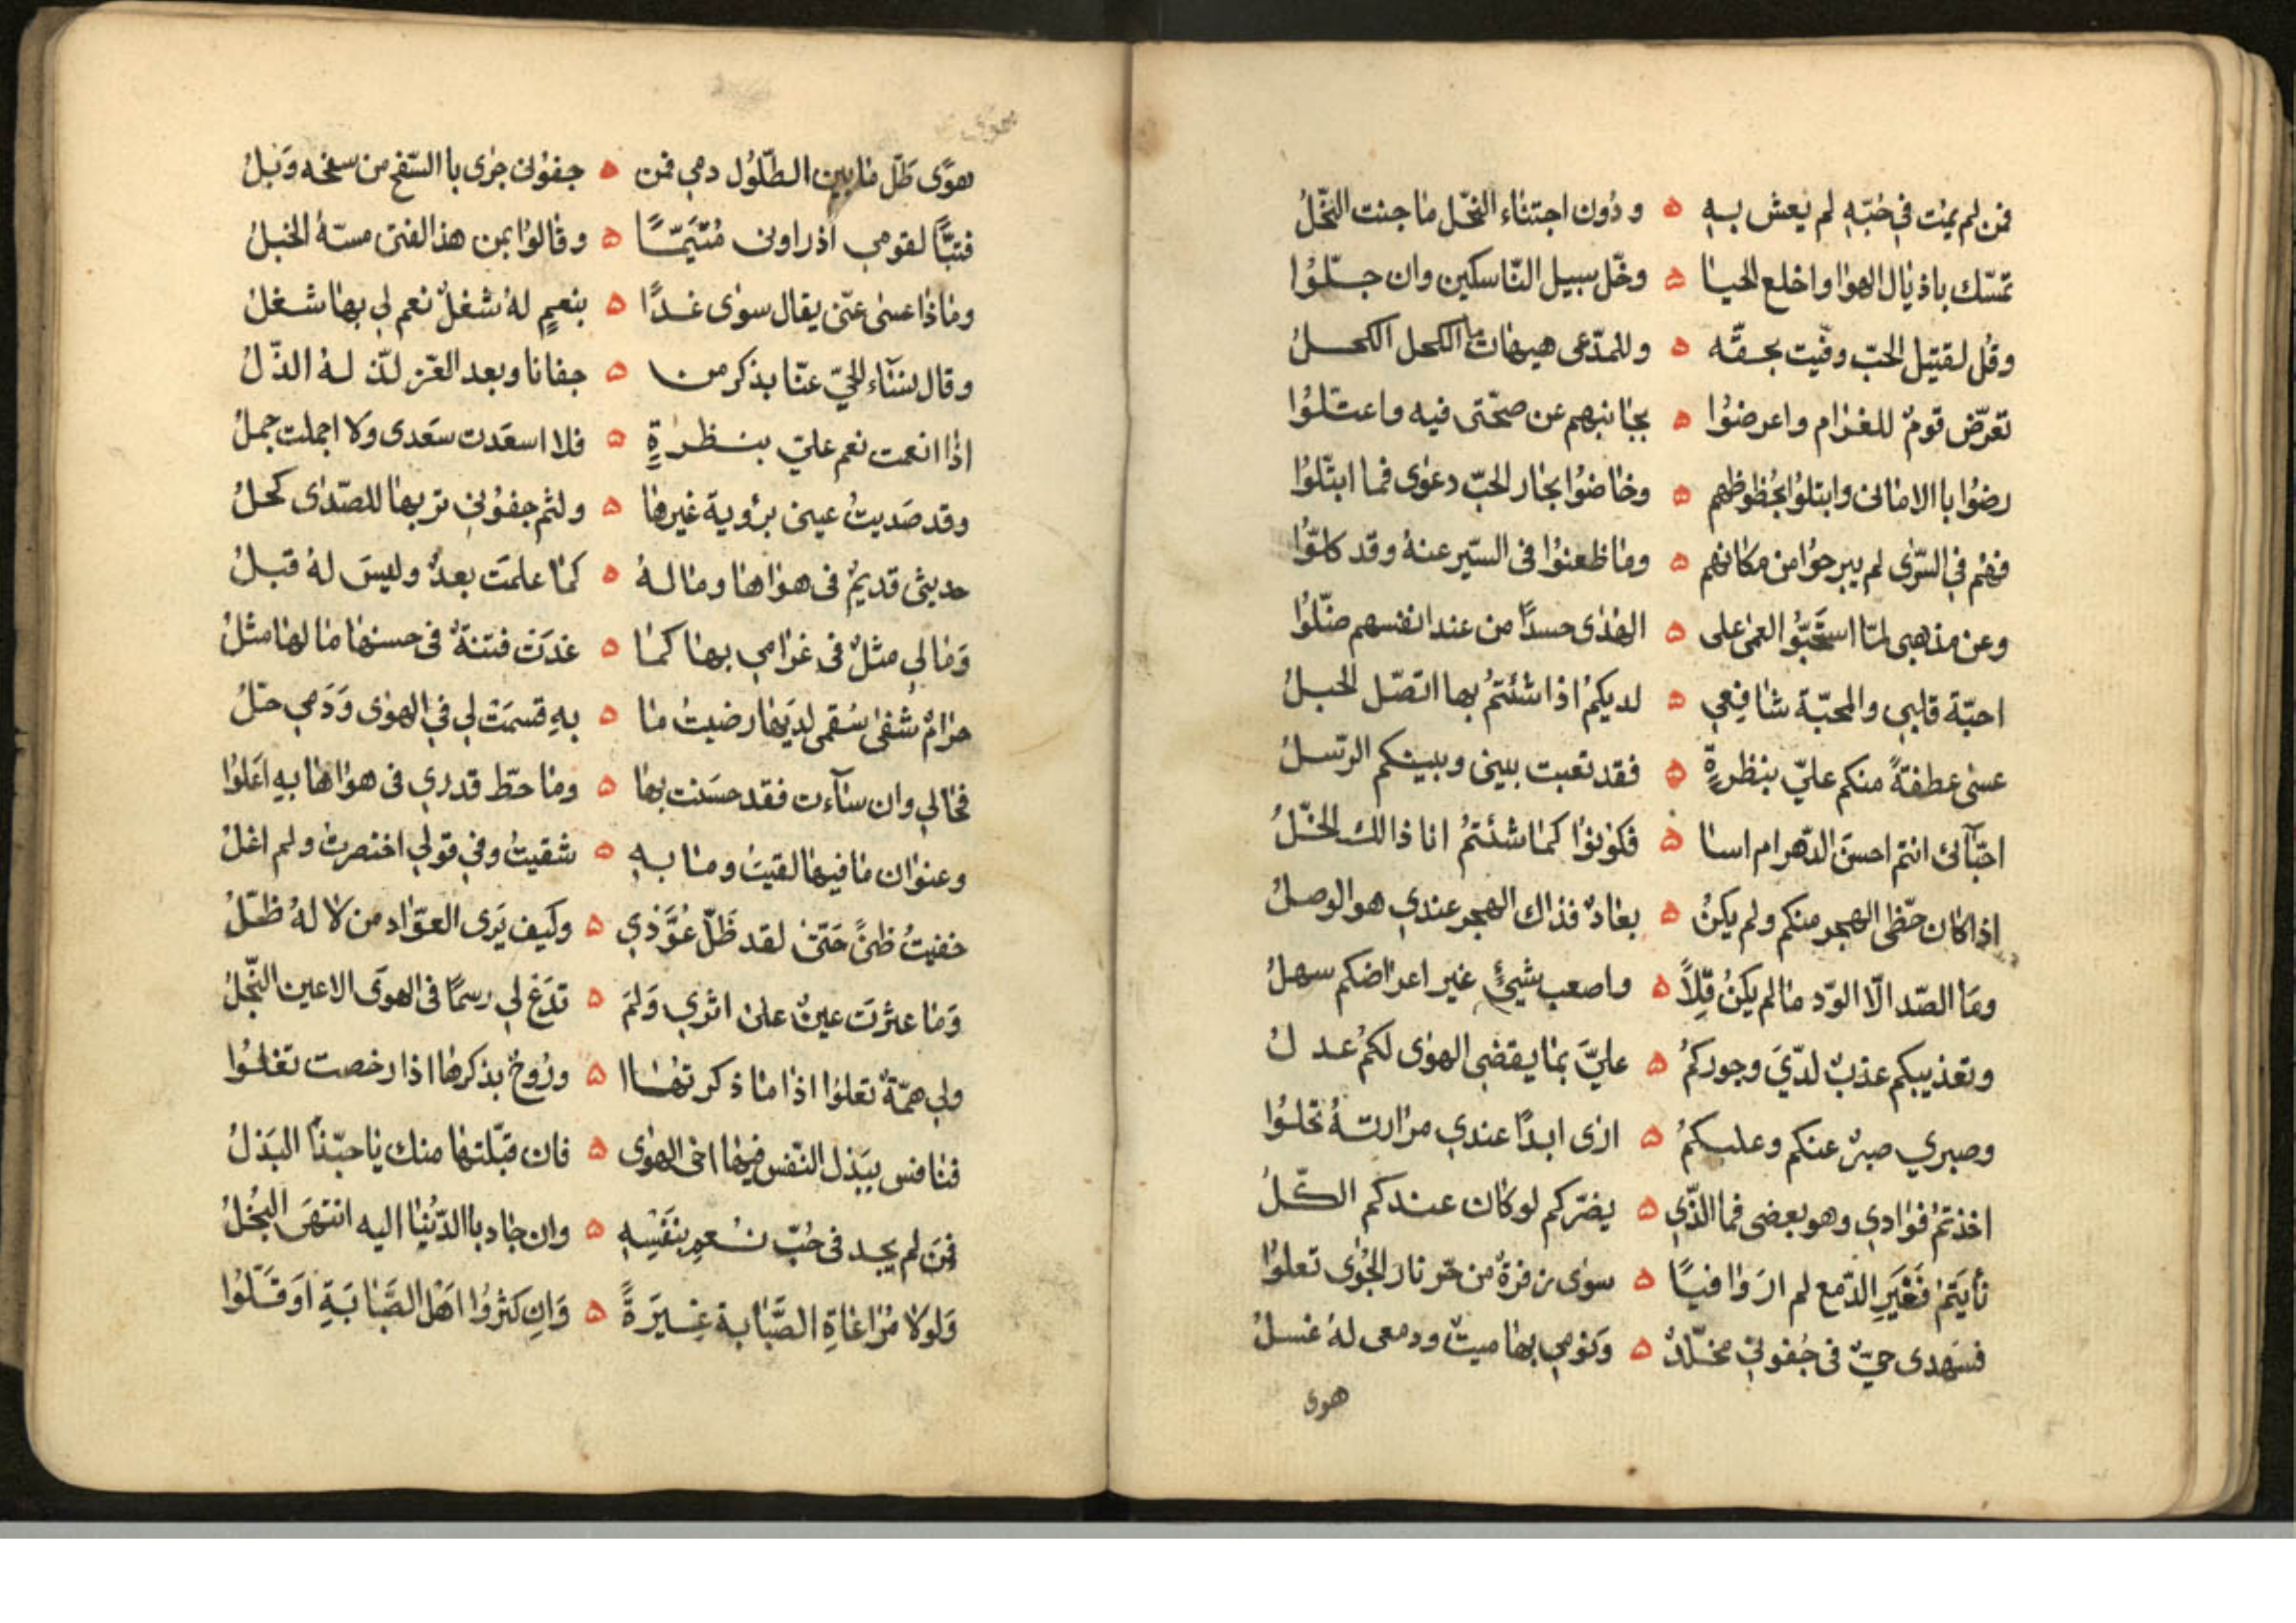 فمن لم يمت في حُبّهِ لم يَعش بهِ ه ودُون اجتناء النحّل ما جنت النحّلُ
تمسّك باذيال الهوا واخلع الحيا ه وخّل سبيل النّاسكين وان جلّوُا
وقُل لقتيل الحبّ وفيّت بحقّه ه وللمدّعى هيهات ما الكحل الكحلُ
تعرّض قومٌ للغرام واعرضوُا ه بجانبهم عن صحّتى فيه واعتلّوُا
رضوُا باالامانى وابتلوُا بحُظوظهم ه وخاضوُا بحار الحبّ دعوى فما ابتلّوُا
فهُم في السّرى لم يبرحوُا من مكانهم ه وما ظعنوُا فى السّير عنهُ وقد كلّوُا
وعن مذهبى لمّا استحَبّوُا العمى على ه الهدى حسداً من عند انفسهم ضلّوُا
احبّة قلبي والمحبّة شافِعي ه لديكمُ اذا شئتمُ بها اتصّل الحبلُ
عسى عطفةً منكم عليّ بنظرةٍ ه فقد تعبت بينى وبينكم الرّسلُ
احبّآئى انتم احسنَ الدّهر ام اسا ه فكونوُا كما شئتمُ انا ذالك الخّلُ
اذا كان حظّى الهجر منكم ولم يكنُ ه بعادٌ فذاك الهجر عندي هو الوصلُ
وما الصّد الّا الوّد ما لم يكنُ قِلاً ه واصعب شيئٍ غير اعراضكم سهلُ
وتعذيبكم عذبٌ لدّيَ وجوركمُ ه عليَّ بما يقضى الهوى لكمُ عدلُ
وصبري صبرٌ عنكم وعليكمُ ه ارى ابداً عندي مرارتهُ تحلوُا
اخذتمُ فوادي وهو بعضى فما الذّي ه يضرّكم لو كان عندكم الكّلُ
نأيتمُ فَغَيرَ الدّمع لم ارَ وافياً ه سوى زفرةٌ من حّر نار الجوُى تعلوُا
فسَهدى حيٌّ فى جُفوني مخلّدٌ ه وَنومي بها ميتٌ ودمعى لهُ غسلُ
هوى
هوًى طَلّ ما بين الطّلوُل دمي فمن ه جفوُنى جرَى باالسّفح من سفحه وَبلُ
فتبّاً لقومي اذ راونى مُتيّمّاً ه وقالوُا بمن هذا الفتى مسّهُ الخبلُ
وماذا عسى عنّى يقال سوى غداً ه بنعمٍ لهُ شغلٌ نعم لي بها شغلُ
وقال نسآء الحيّ عنّا بذكر من ه جفانا وبعد العّز لذّ لهُ الذّلُ
اذا انعمت نعم عليّ بنظرةٍ ه فلا اسعَدت سَعدى ولا اجملت جملُ
وقد صَديتُ عينى برؤية غيرها ه ولثم جفوُني تربها للصّدى كحلُ
حديثى قديمٌ فى هواها وما لهُ ه كما علمَت بعدٌ وليسَ لهُ قبلُ
وَمالى مثلٌ فى غرامي بها كما ه غدَت فتنةٌ فى حسنها ما لها مثلُ
حرامٌ شفى سُقمى لديَها رضيتُ ما ه بهِ قسمَت لي في الهوى وَدَمي حلُ
فحالي وان سآءت فقد حسَنت بها ه وما حطّ قدري فى هواها بهِ اعَلوُا
وعنوان ما فيها لقيتُ وما بهِ ه شقيتُ وفي قولي اختصرتُ ولم اغلُ
خفيتُ ظنىً حَتّى لقد ظَلّ عُوَّدي ه وكيف يَرى العوّاد من لا لهُ ظلّلُ
وَما عثرَت عينٌ على اثري وَلمَ ه تدَع لي رسماً فى الهوَى الاعين النّجلُ
ولي همّةٌ تعلوُا اذا ما ذكرتها ه ورُوحٌ بذكرها اذا رخصت تغلوُا
فنافس ببَذل النّفس فيها اخى الهوى ه فان قبّلتها منك يا حبّذا البَذلُ
فمَن لم يجد فى حُبّ نُعمِ بنَفَسِهِ ه وان جاد باالدّنيا اليه انتهَى البُخلُ
وَلولا مُراعاةِ الصَّبابة غيرَةً ه وَاِن كثروُا اهَل الصَّبابَةِ اوَ قَلّوُا